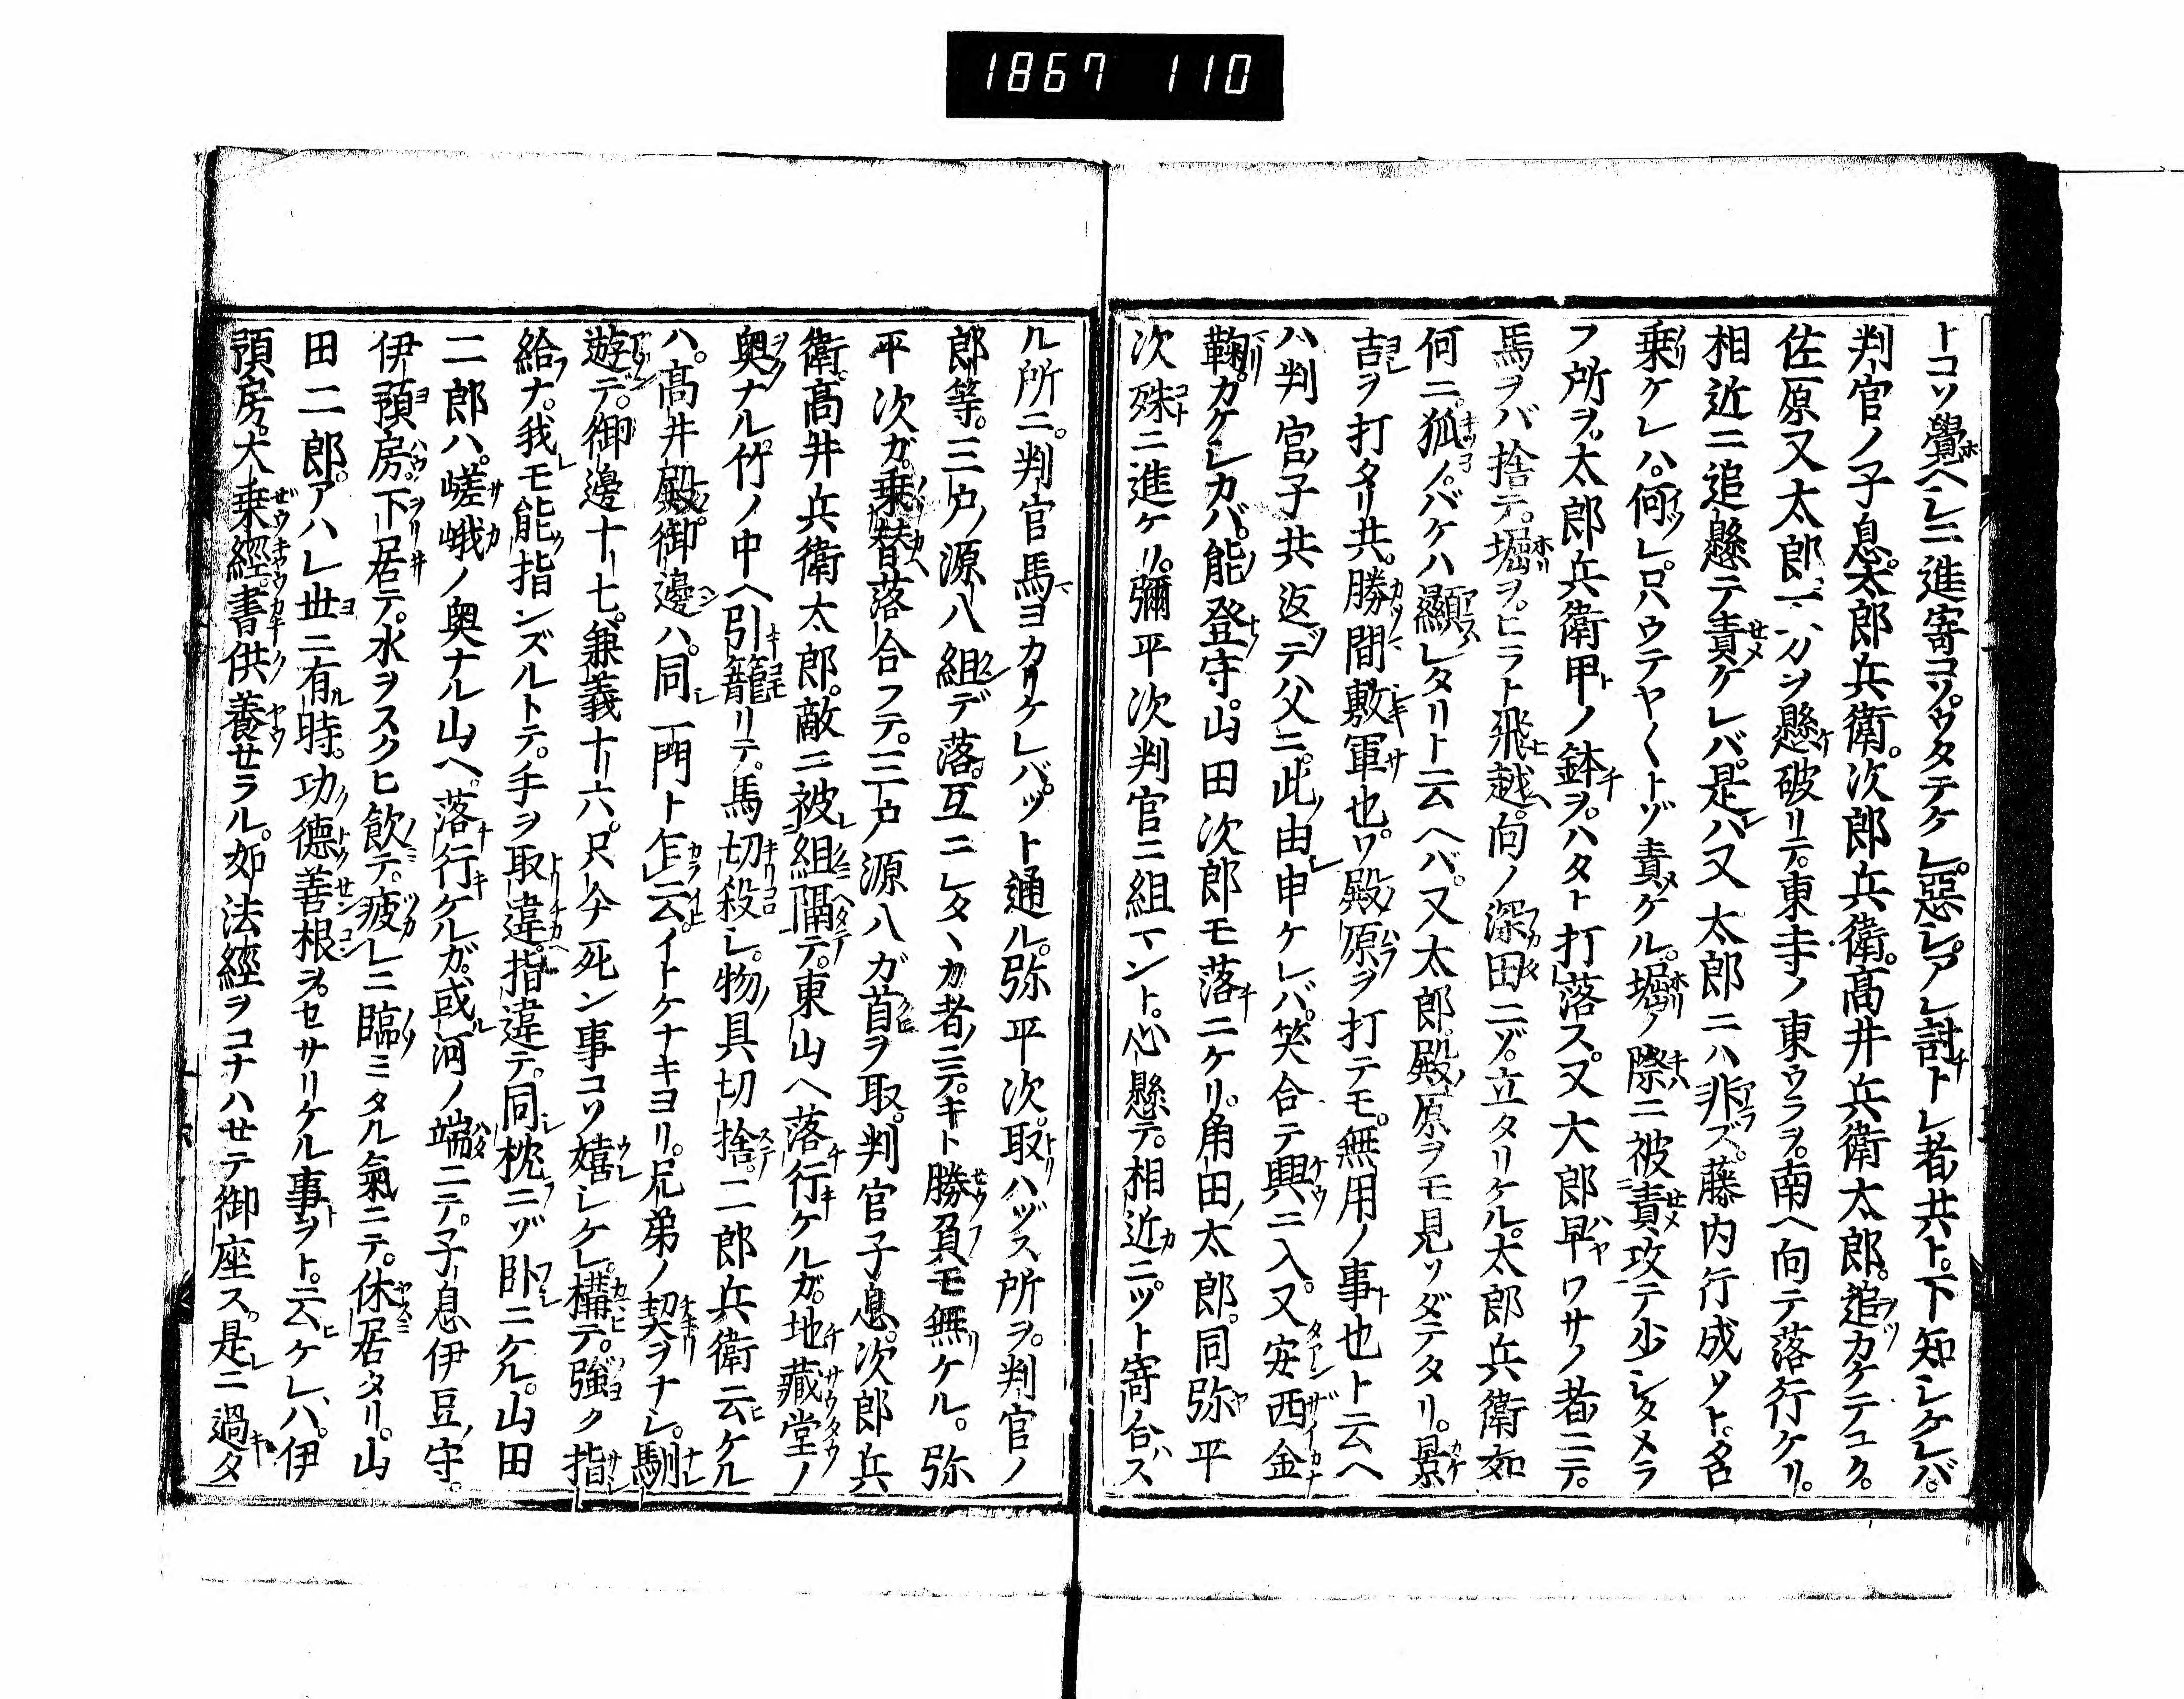 1867 110
トコソ覺ヘシニ進寄コソ。ウタテケレ。惡シ。アレ討トレ者共ト。下知シケレバ。
判官ノ子息。太郎兵衛。次郎兵衛。髙井兵衛太郎。追カケテユク。
佐原又太郎一方ヲ懸破リテ。東寺ノ東ウラヲ。南ヘ向テ落行ケリ。
相近ニ追懸テ責ケレバ。是ハ又太郎ニハ非ズ。藤内行成ソト。名
乗ケレハ。何レ。只ウテヤ〱トゾ責ケル。堀ノ際ニ被責攻テ少シタメラ
フ所ヲ。太郎兵衛甲ノ鉢ヲ。ハタト打落ス。又大郎早ワサノ者ニテ。
馬ヲバ捨テ。堀ヲ。ヒラト飛越。向ノ深田ニゾ。立タリケル。太郎兵衛如
何ニ。狐ノバケハ顯レタリト云ヘバ。又太郎。殿原ヲモ見ソダテタリ。景
吉ヲ打タリ共。勝間敷軍也。ワ殿原ヲ打テモ。無用ノ事也ト云ヘ
ハ判官子共返デ父ニ。此由申ケレバ。笑合テ興ニ入。又安西金
鞠カケシカバ。能登守。山田次郎モ落ニケリ。角田太郎。同弥平
次殊ニ進ケリ。彌平次判官ニ組マント。心懸テ。相近ニツト寄合ス
ル所ニ。判官馬ヨカリケレバ。ツト通ル。弥平次。取ハヅス所ヲ。判官ノ
郎等。三戸ノ源八組デ落。互ニシタヽカ者ニテ。キト勝負モ無ケル。弥
平次ガ。乗替落合フテ。三戸源八ガ首ヲ取。判官子息。次郎兵
衛。髙井兵衛太郎。敵ニ被組隔テ。東山ヘ落行ケルガ。地藏堂ノ
奥ナル。竹ノ中ヘ引籠リテ。馬切殺シ。物具切捨。二郎兵衛云ケル
ハ。髙井殿御邊ハ。同一門ト乍云。イトケナキヨリ。兄弟ノ契ヲナシ。馴
遊デ。御邊十七。兼義十六。只今死ン事コソ嬉シケレ。構テ。強ク指
給ナ。我モ能指ンズルトテ。手ヲ取違。指違テ。同枕ニゾ臥ニケル。山田
二郎ハ。嵯峨ノ奥ナル山ヘ。落行ケルガ。或河ノ端ニテ。子息伊豆守。
伊預房。下居テ。水ヲスクヒ飲テ。疲レニ臨ミタル氣ニテ。休居タリ。山
田二郎。アハレ世ニ有時。功德善根ヲ。セサリケル事ヲト。云ケレハ。伊
預房。大乗經。書供養セラル。如法經ヲコナハセテ御座ス。是ニ過タ